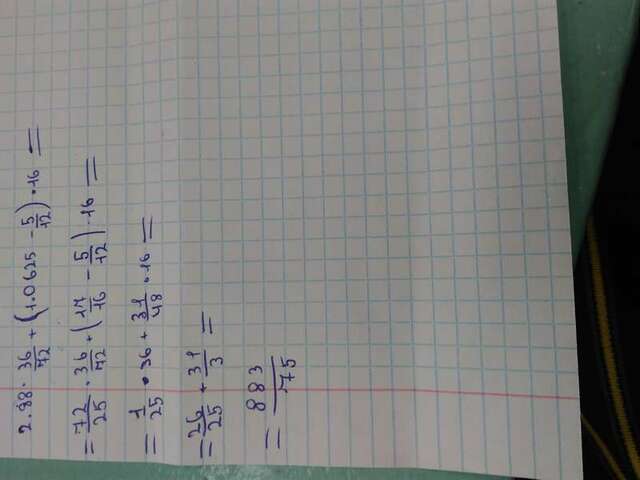 2.88 · 36/72 + (1.0625 - 5/12) · 16 =
= 72/25 · 36/72 + (17/16 - 5/12) · 16 =
= 1/25 · 36 + 31/48 · 16 =
= 26/25 + 31/3 =
= 883/75